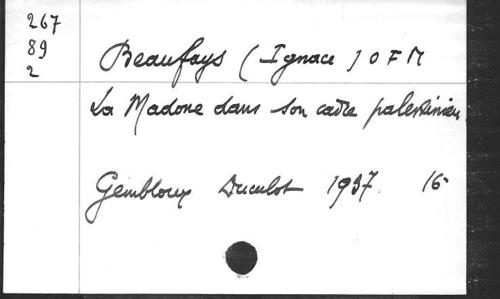 267
89
2
Beaufays (Ignace) OFM
La Madone dans son cadre palestinien
Gembloux Duculot 1937 16°